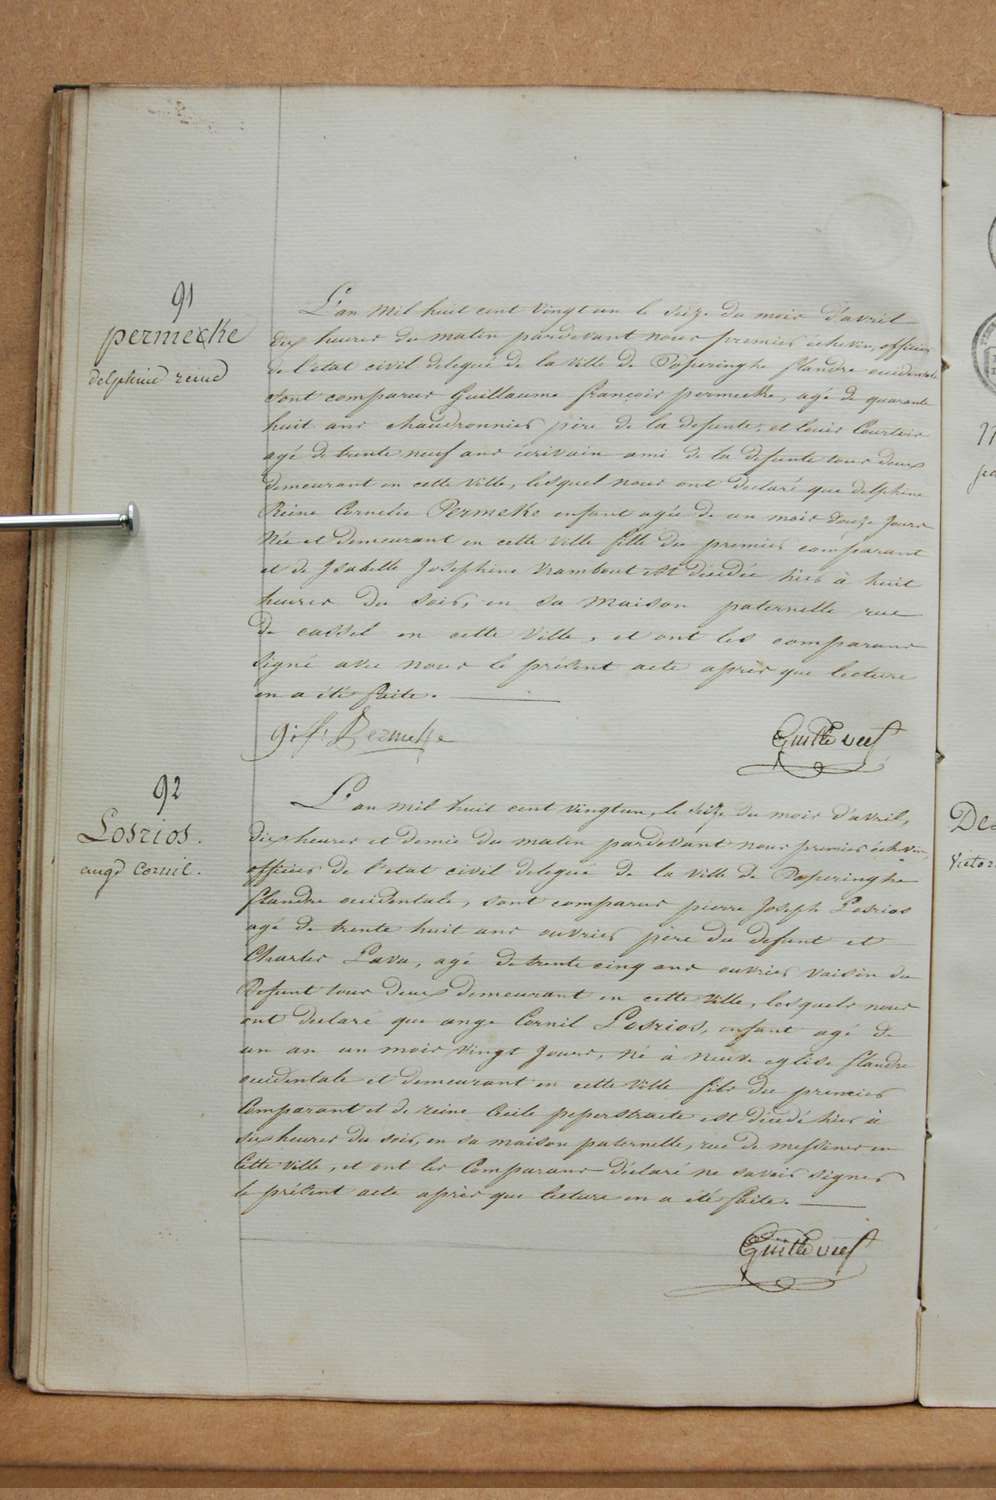 91
permecke
delphine reine
L'an mil huit cent vingt un le seize du mois d'avril
dix heures du matin pardevant nous premier échevin, officier
de l'etat civil delegué de la ville de Poperinghe flandre occidentale
sont comparus Guillaume françois permecke, agé de quarante
huit ans chaudronnier père de la defunte, et louis Courtois
agé de trente neuf ans écrivain ami de la defunte tous deux
demeurant en cette ville, lesquel nous ont declaré que delphine
Reine Cornelie Permeke enfant agée de un mois douze jours
Née et demeurant en cette ville fille du premier comparant
et de Isabelle Josephine Vrambout est décédée hier à huit
heures du soir, en sa maison paternelle rue
de cassel en cette ville, et ont les comparans
signé avec nous le présent acte après que lecture
en a été faite.
g: f: Permeke
92
Losrios.
ange Cornil.
L'an mil huit cent vingt un, le seize du mois d'avril,
dix heures et demie du matin pardevant nous premier échevin,
officier de l'etat civil delegué de la ville de Poperinghe
flandre occidentale, sont comparus pierre Joseph Losrios
agé de trente huit ans ouvrier père du defunt et
Charles Lava, agé de trente cinq ans ouvrier voisin du
Defunt tous deux demeurant en cette ville, lesquels nous
ont declaré que ange Cornil Losrios, enfant agé de
un an un mois vingt jours, né à Neuve eglise flandre
occidentale et demeurant en cette ville fils du premier
Comparant et de reine Cecile peperstraete est décédé hier à
six heures du soir, en sa maison paternelle, rue de messines en
Cette ville, et ont les Comparans déclaré ne savoir signer
le présent acte après que lecture en a été faite.